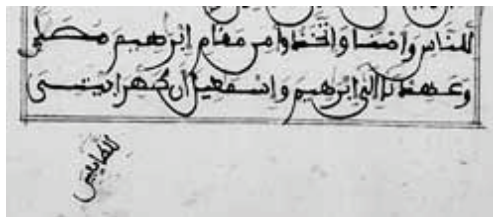 للناس وامنا واتخذوا من مقام ابرهيم مصلى
وعهدنا الى ابرهيم واسمعيل ان طهرا بيتي
للطايفين